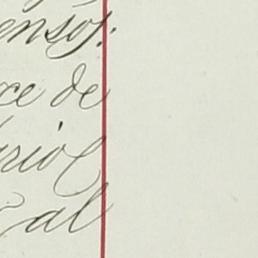 ensos:
ce de
riol
al